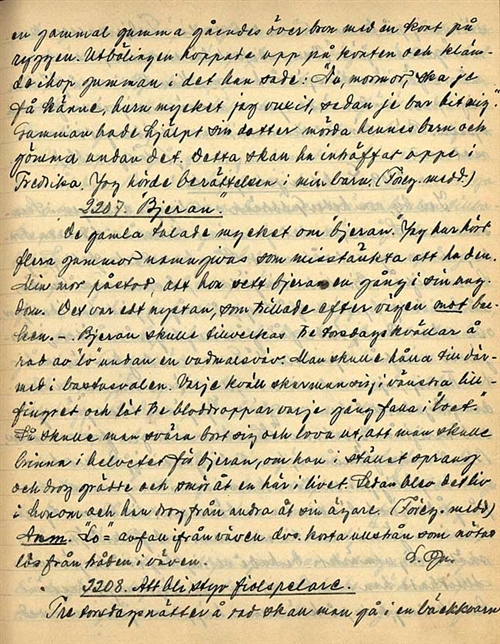 en gammal gumma gåendes över bron med en kont på
ryggen. Utbölingen hoppade upp på konten och kläm-
de ihop gumman i det han sade: "Nu, mormor, ska je
få känne, hurn mycket jag vuxit, sedan je bar hit mig."
Gumman hade hjälpt sin dotter mörda hennes barn och
gömma undan det. Detta skall ha inträffat uppe i
Fredrika. Jag hörde berättelsen i min barnd. (Föreg. medd.)
2207. "Bjeran"
De gamla talade mycket om "bjeran". Jag har hört
flera gummor namngivas som misstänkta att ha den.
Min mor påstod, att hon sett bjeran en gång i sin ung-
dom. Det var ett nystan, som trillade efter vägen mot bac-
ken. – Bjeran skulle tillverkas tre torsdagskvällar å
rad av "lo" undan en vadmalsväv. Man skulle hålla till där-
med i bastuvalen. Varje kväll skar man sig i vänstra lill-
fingret och lät tre bloddroppar varje gång falla i "loet".
Så skulle man svära bort sig och lova ut, att man skulle
brinna i helvetet för bjeran, om han i stället sprang
och drog grädde och smör åt en här i livet. Sedan blev det liv
i honom och han drog från andra åt sin ägare. (Föreg. medd)
Anm. "Lo" = avfall ifrån väven dvs. korta ullstrån som nötas
lös från tråden i väven.
2208. Att bli styv fiolspelare.
Tre torsdagsnätter å rad skall man gå i en bäckkvarn